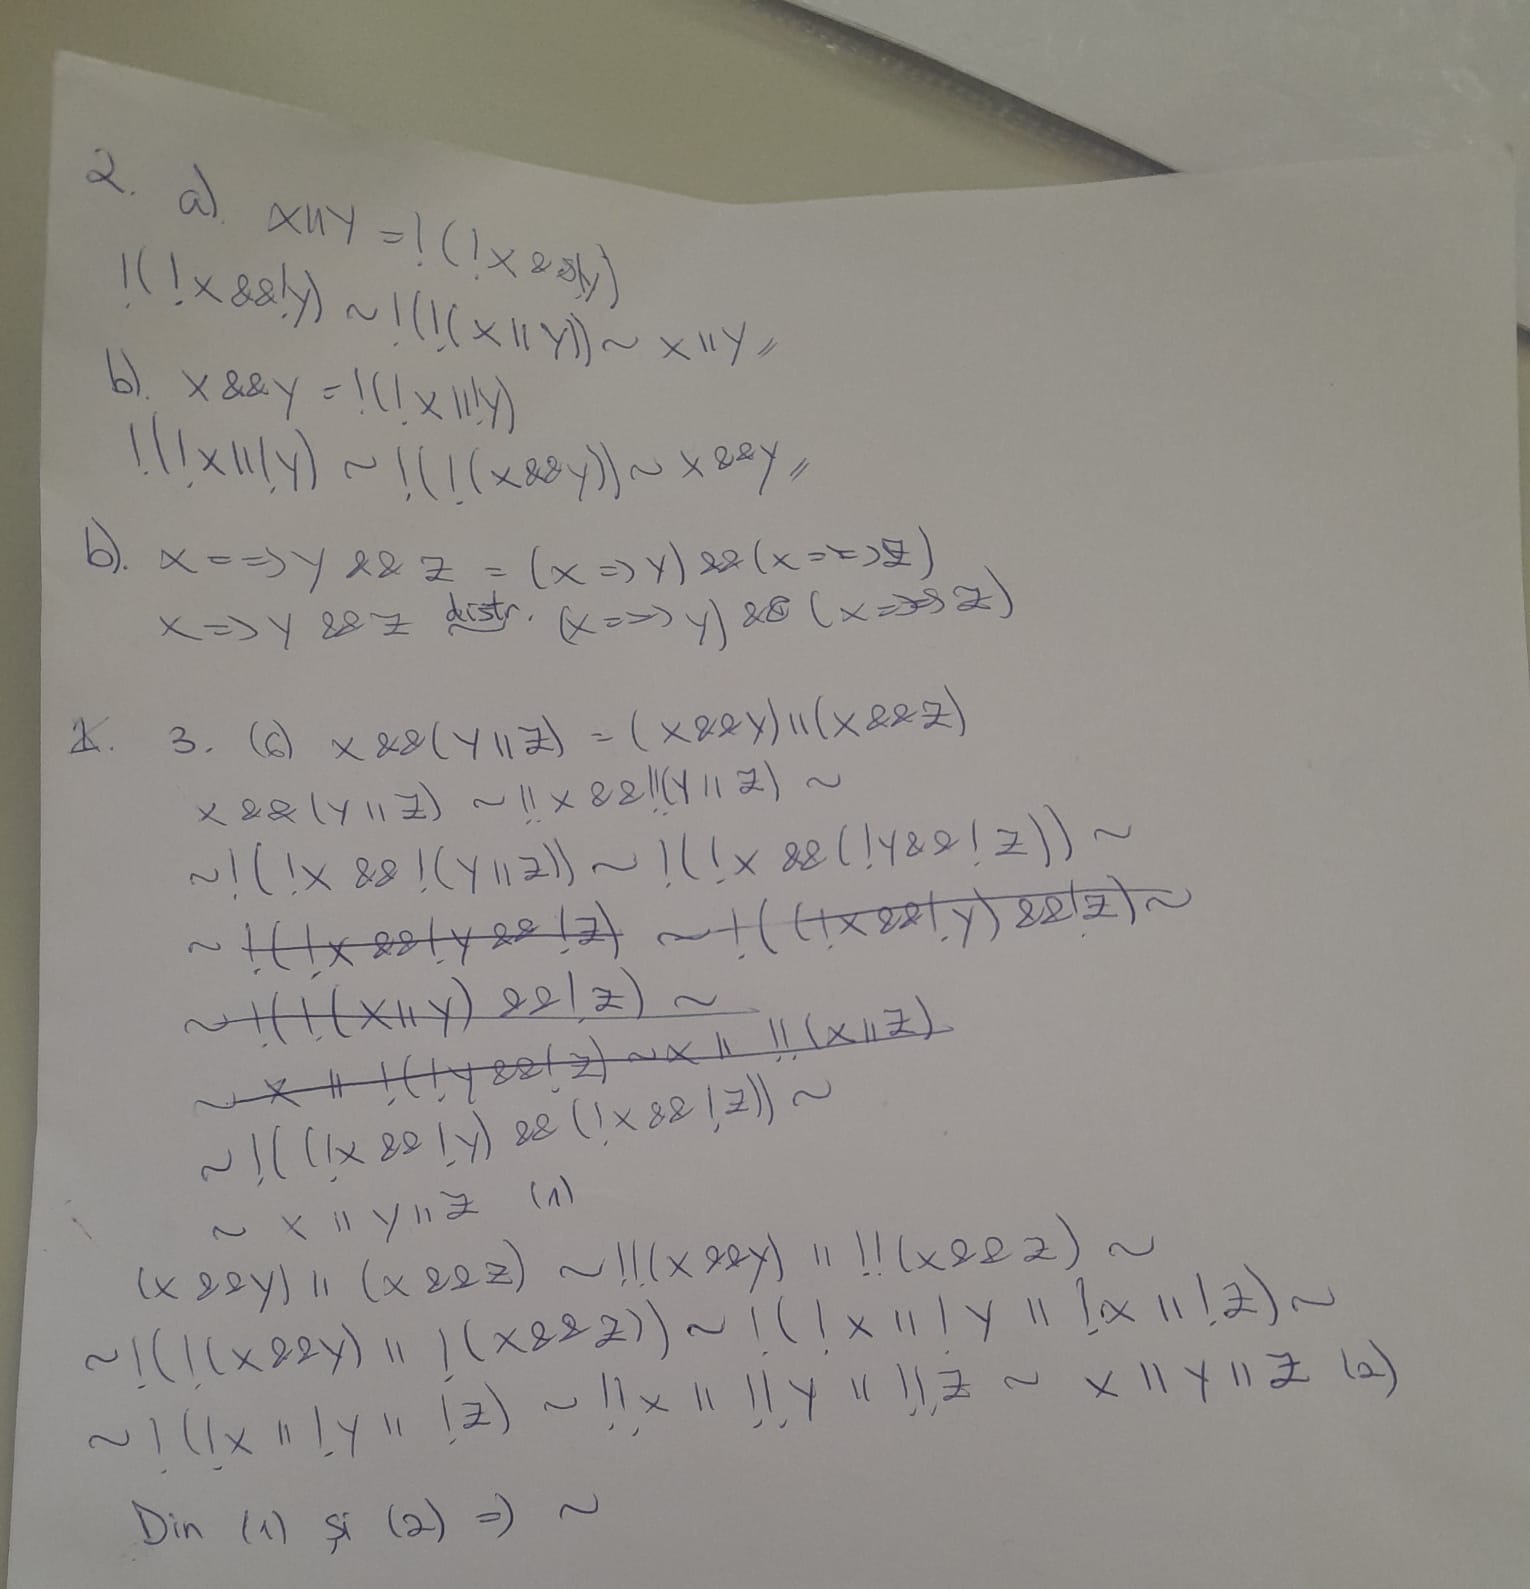 2. a) x||y = !(!x &&!y)
!(!x &&!y) ~ !(!(x || y)) ~ x||y //
b). x && y = !(!x ||!y)
!(!x||!y) ~ !(!(x&&y)) ~ x&&y //
b). x ==> y && z = (x => y) && (x ==> z)
x => y && z distr. (x ==> y) && (x ==> z)
1. 3. (6) x &&(y || z) = (x&&y) || (x&&z)
x && (y || z) ~ !!x && !!(y || z) ~
~ !(!x && !(y || z)) ~ !(!x && (!y && !z)) ~
~ !(!x && !y && !z) ~ !((!x && !y) && !z) ~
~ !(!(x||y) && !z) ~
~ x || !(!y && !z) ~ x || !!(x||z)
~ !((!x && !y) && (!x && !z)) ~
~ x || y || z (1)
(x && y) || (x && z) ~ !!(x && y) || !!(x && z) ~
~ !(!(x&&y) || !(x && z)) ~ !(!x || !y || !x || !z) ~
~ !(!x || !y || !z) ~ !!x || !!y || !!z ~ x || y || z (2)
Din (1) și (2) => ~